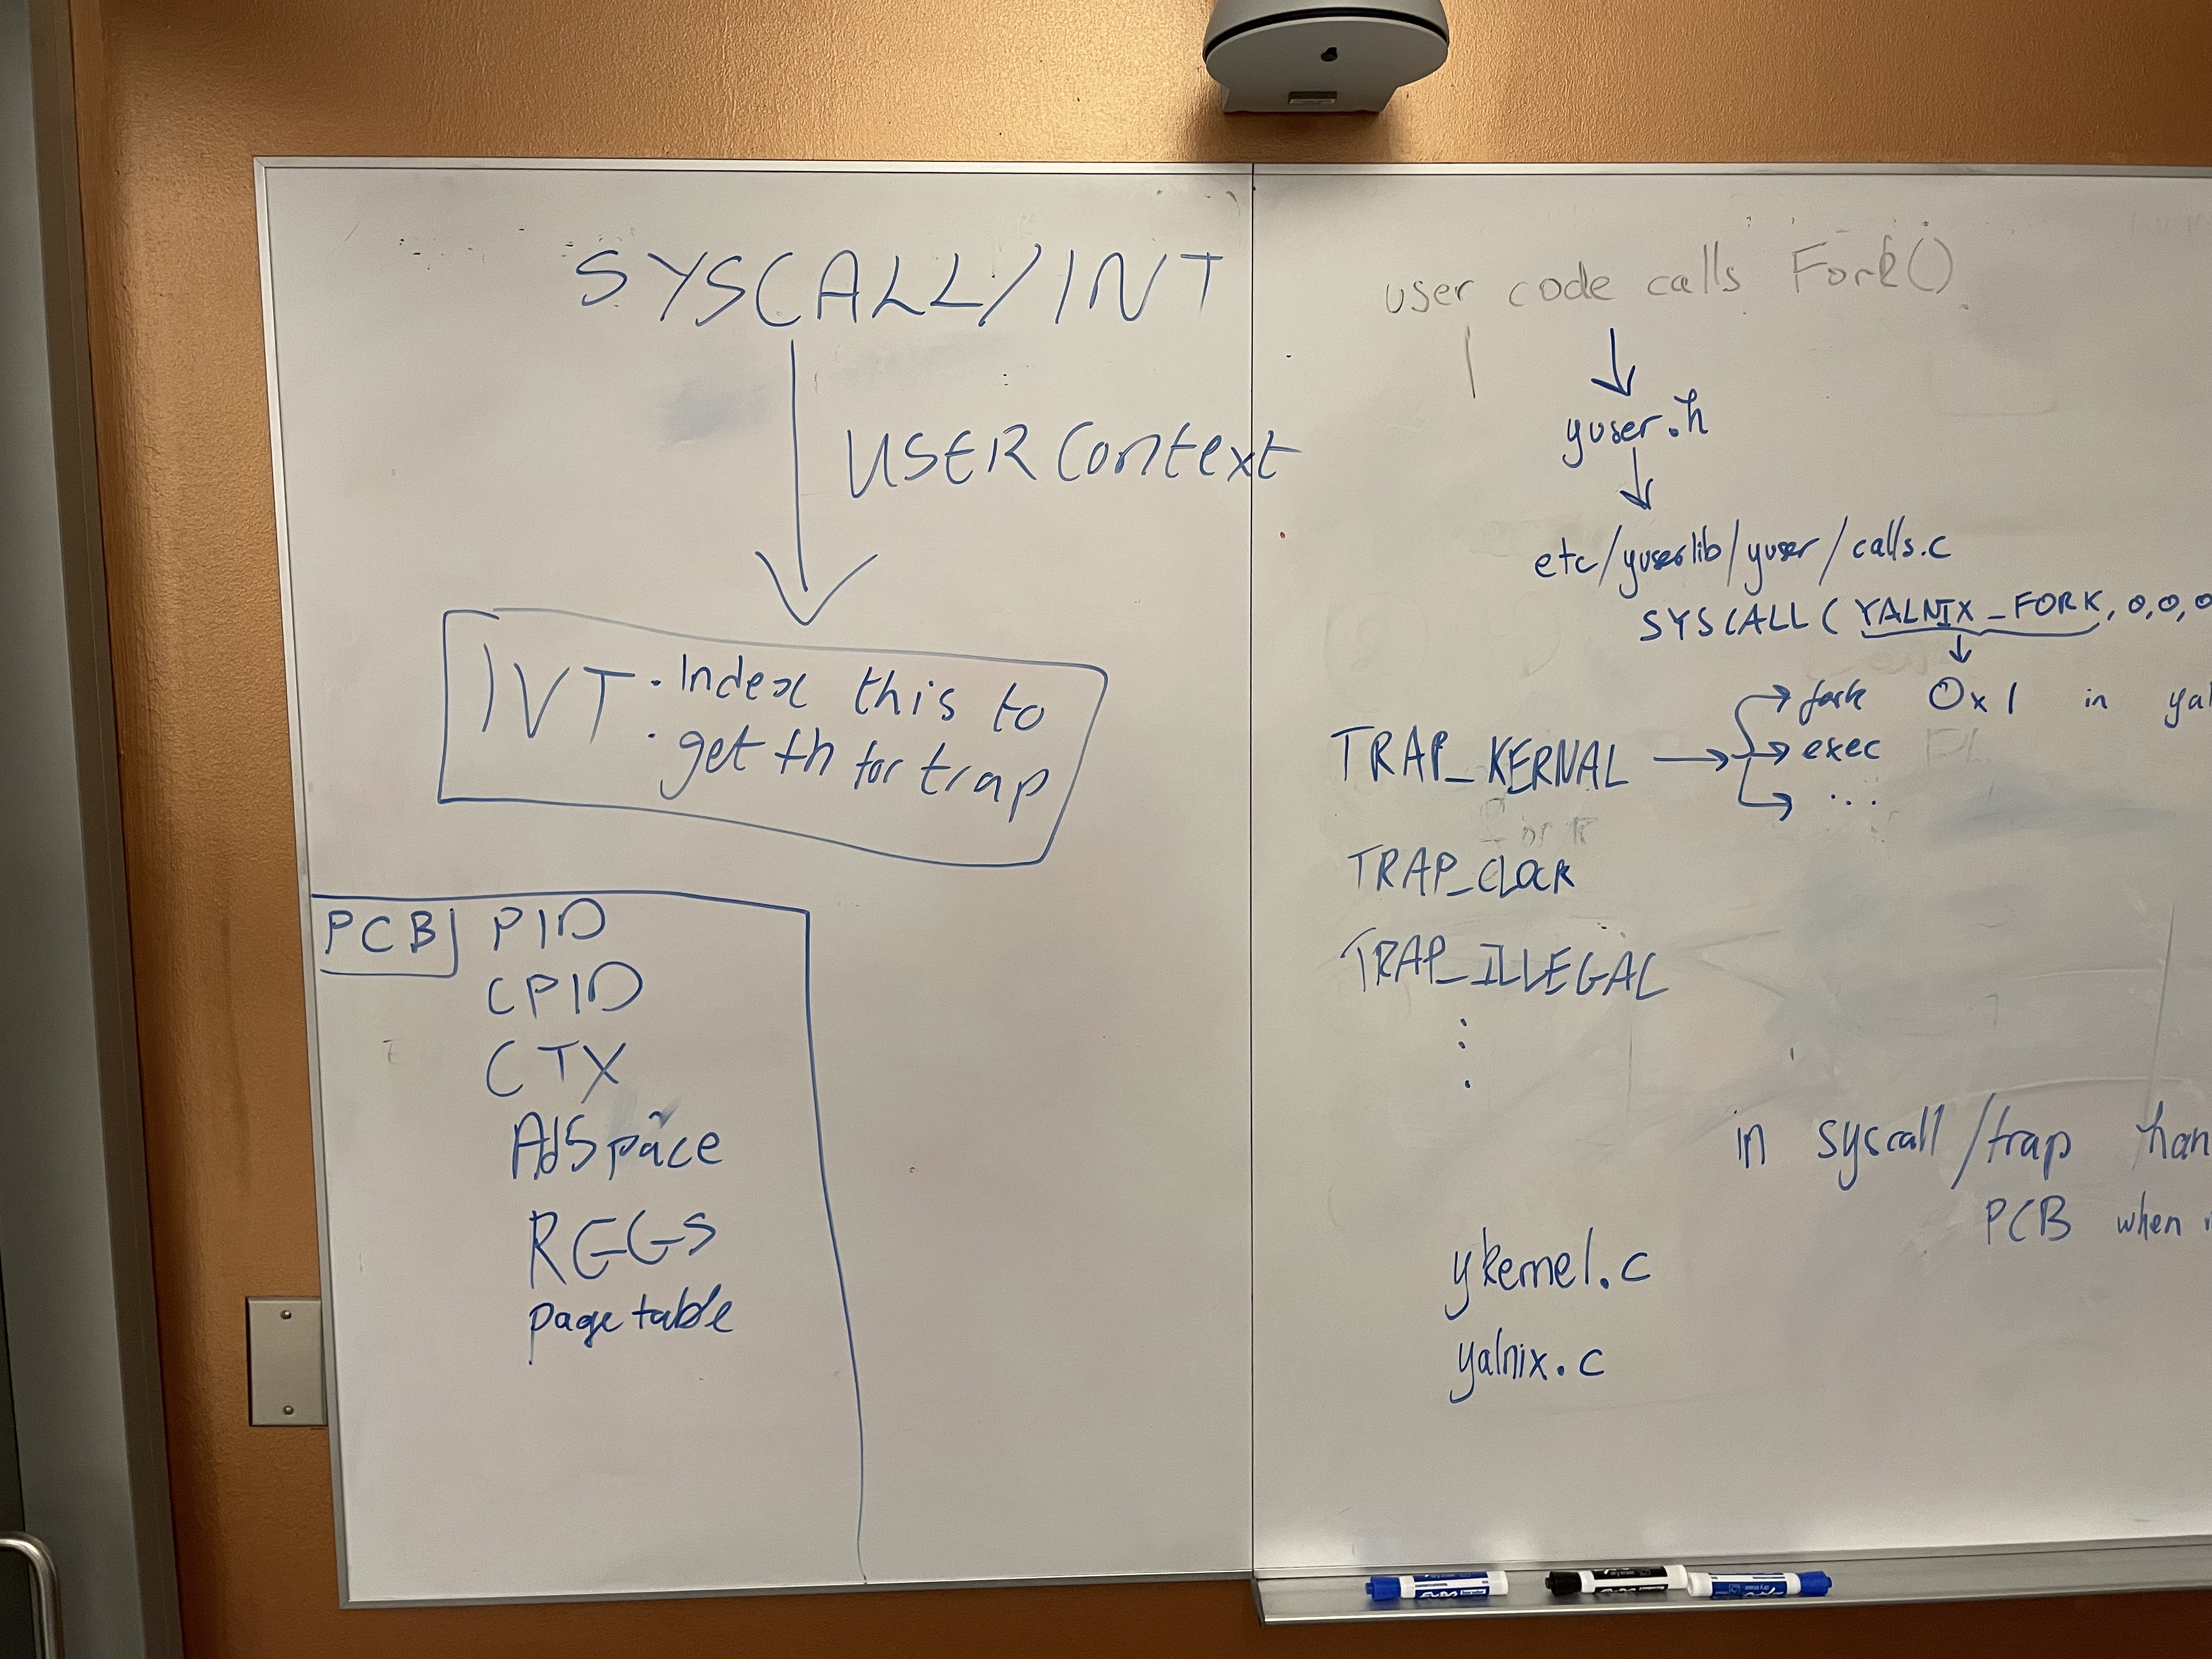 SYSCALL/INT
USER Context
IVT · Index this to
· get th for trap
PCB PID
CPID
CTX
AdSpace
REGS
page table
user code calls Fork()
yuser.h
etc/yuserlib/yuser/calls.c
SYSCALL( YALNIX_FORK, 0,0,0
fork 0x1 in yal
TRAP_KERNAL exec
...
TRAP_CLOCK
TRAP_ILLEGAL
in syscall/trap han
PCB when
ykernel.c
yalnix.c